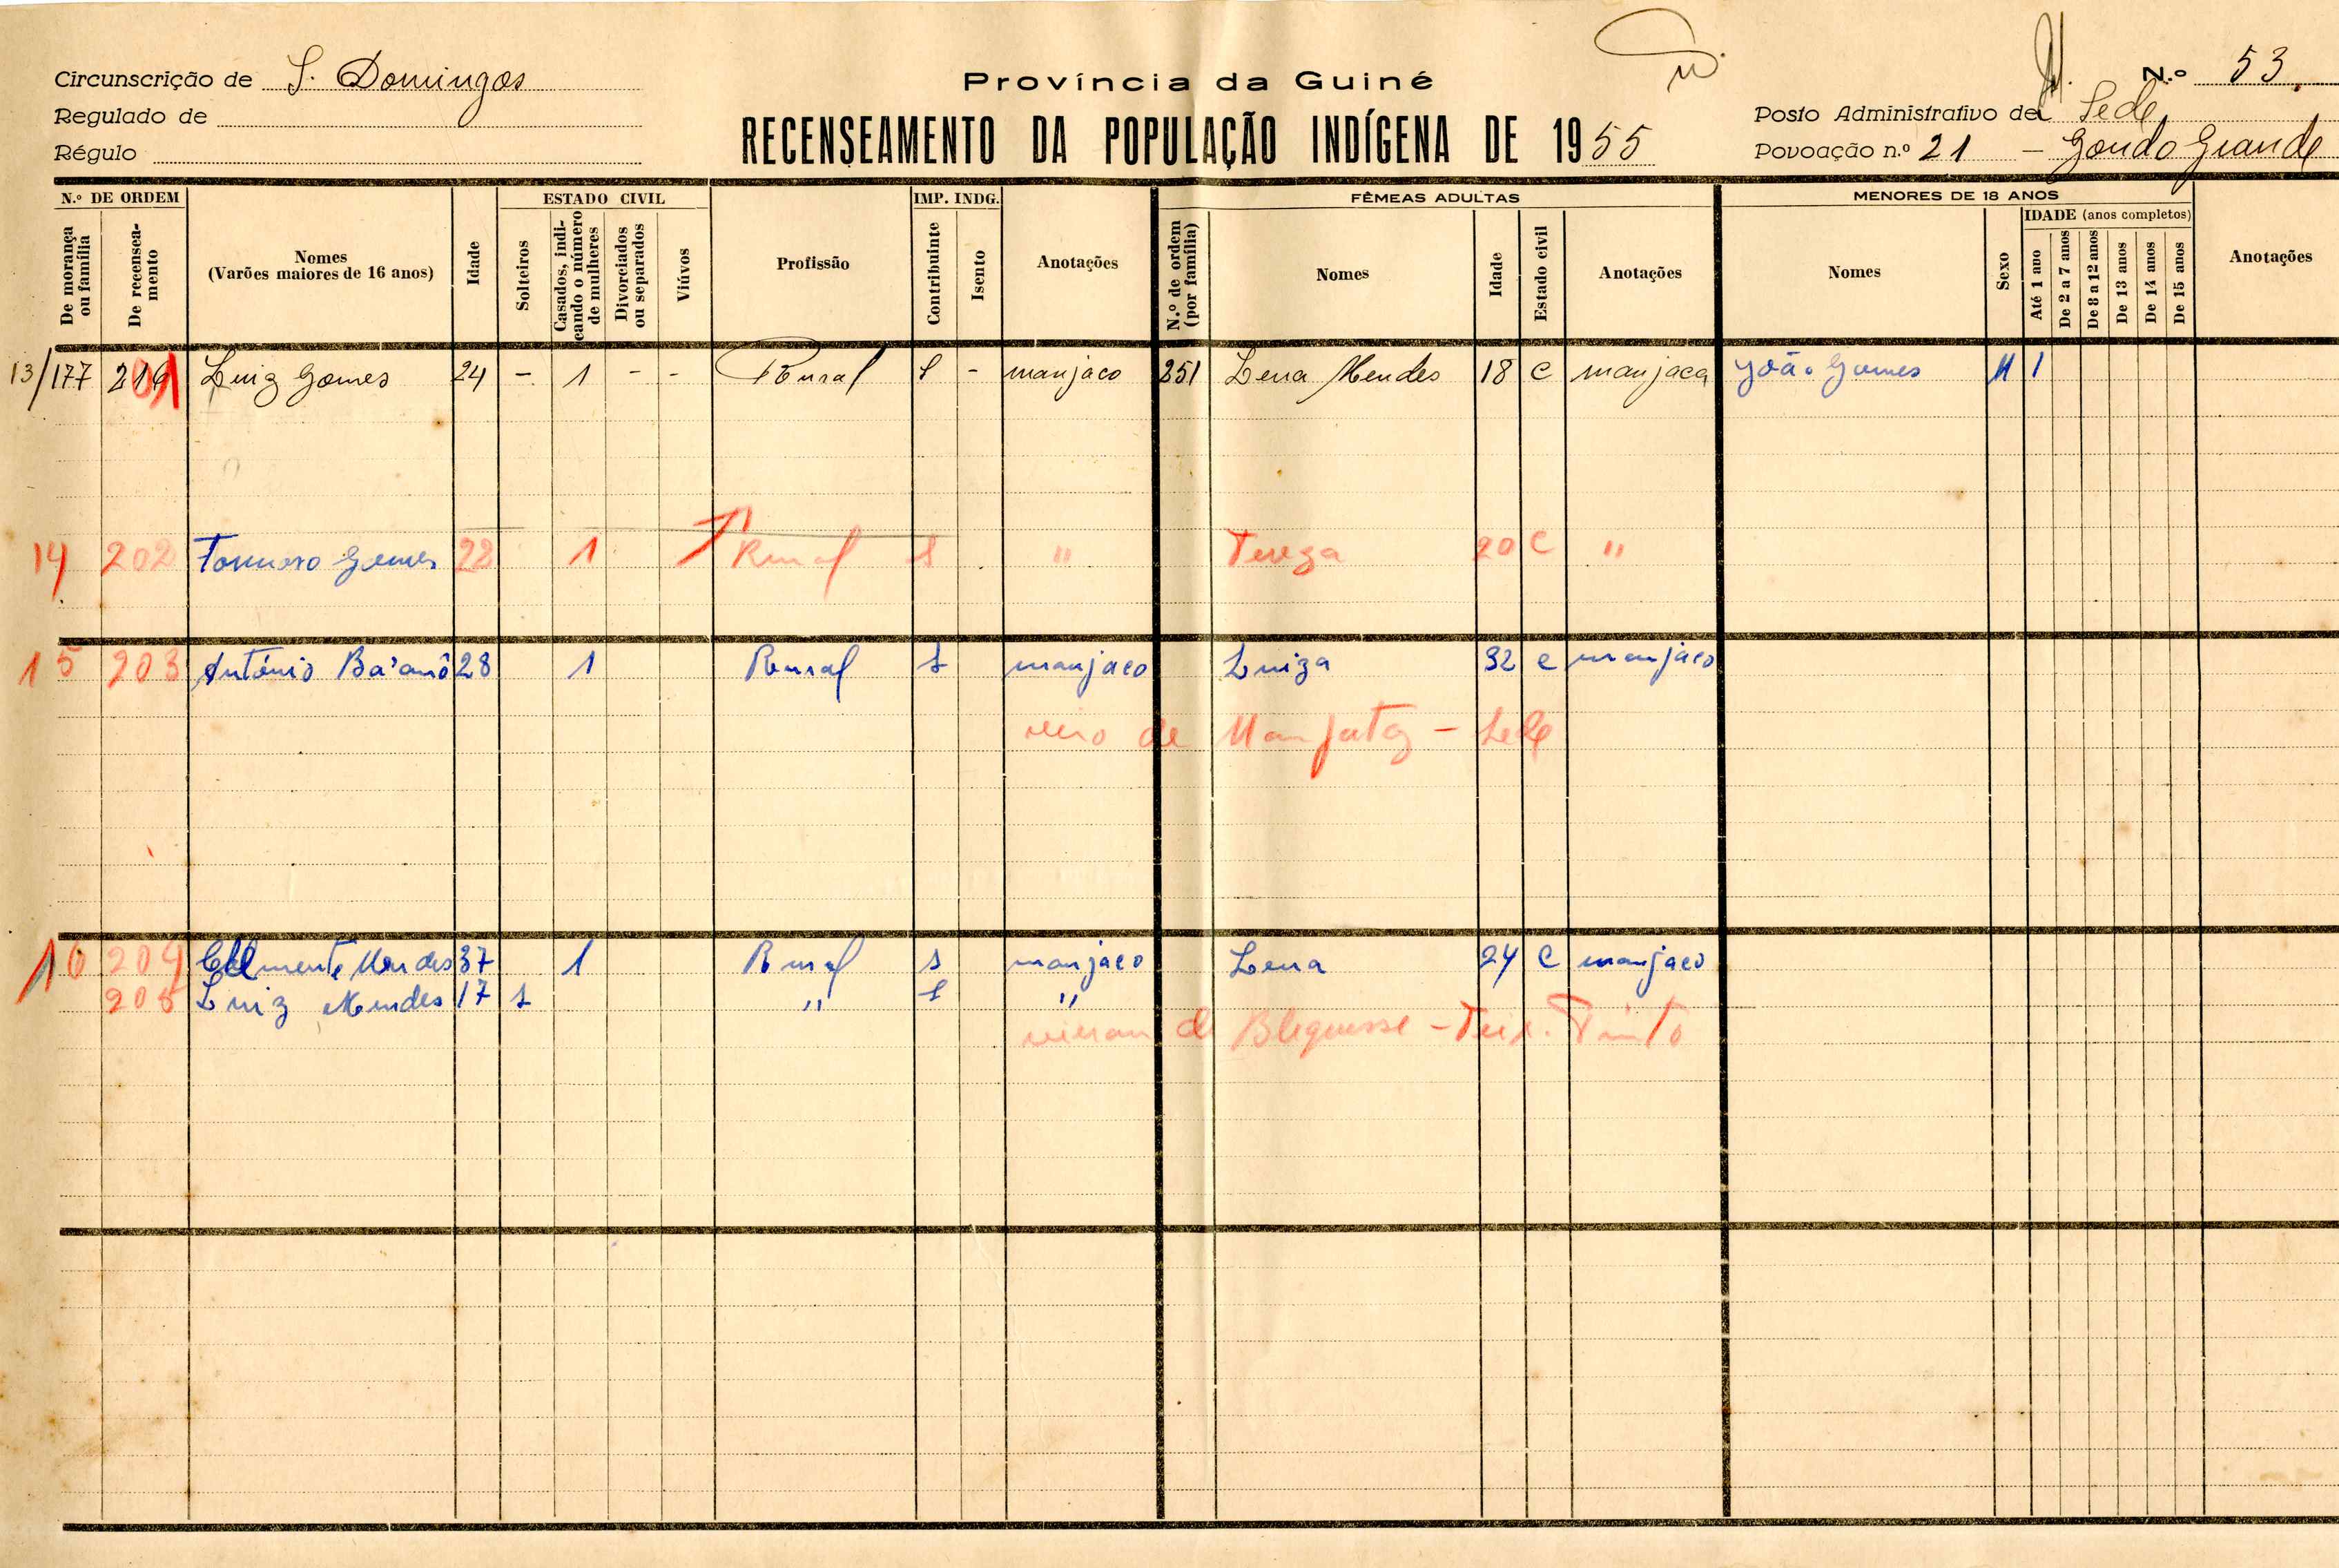 Circunscrição de S. Domingos
Regulado de
Régulo
Província da Guiné
RECENSEAMENTO DA POPULAÇÃO INDÍGENA DE 1955
N.º 53
Posto Administrativo de Sede
Povoação n.º 21 – Gondo Grande
N.º DE ORDEM
De morança ou família
De recensea-mento
Nomes
(Varões maiores de 16 anos)
Idade
ESTADO CIVIL
Solteiros
Casados, indi-cando o número de mulheres
Divorciados ou separados
Viúvos
Profissão
IMP. INDG.
Contribuinte
Isento
Anotações
FÊMEAS ADULTAS
N.º de ordem (por família)
Nomes
Idade
Estado civil
Anotações
MENORES DE 18 ANOS
Nomes
Sexo
IDADE (anos completos)
Até 1 ano
De 2 a 7 anos
De 8 a 12 anos
De 13 anos
De 14 anos
De 15 anos
Anotações
13/177 201 Luiz Gomes 24 - 1 - - Rural 1 - manjaco 251 Lena Mendes 18 C manjaca João Gomes M 1
14 202 Gomes 22 1 Rural 1 " Tereza 20 C "
15 203 António Ba'anô 28 1 Rural 1 manjaco Luiza 32 C manjaco
veio de – Sede
16 204 Clemente Mendes 37 1 Rural 1 manjaco Lena 24 C manjaco
205 Luiz Mendes 17 1 " 1 "
vieram de Bleguesse – Teix. Pinto